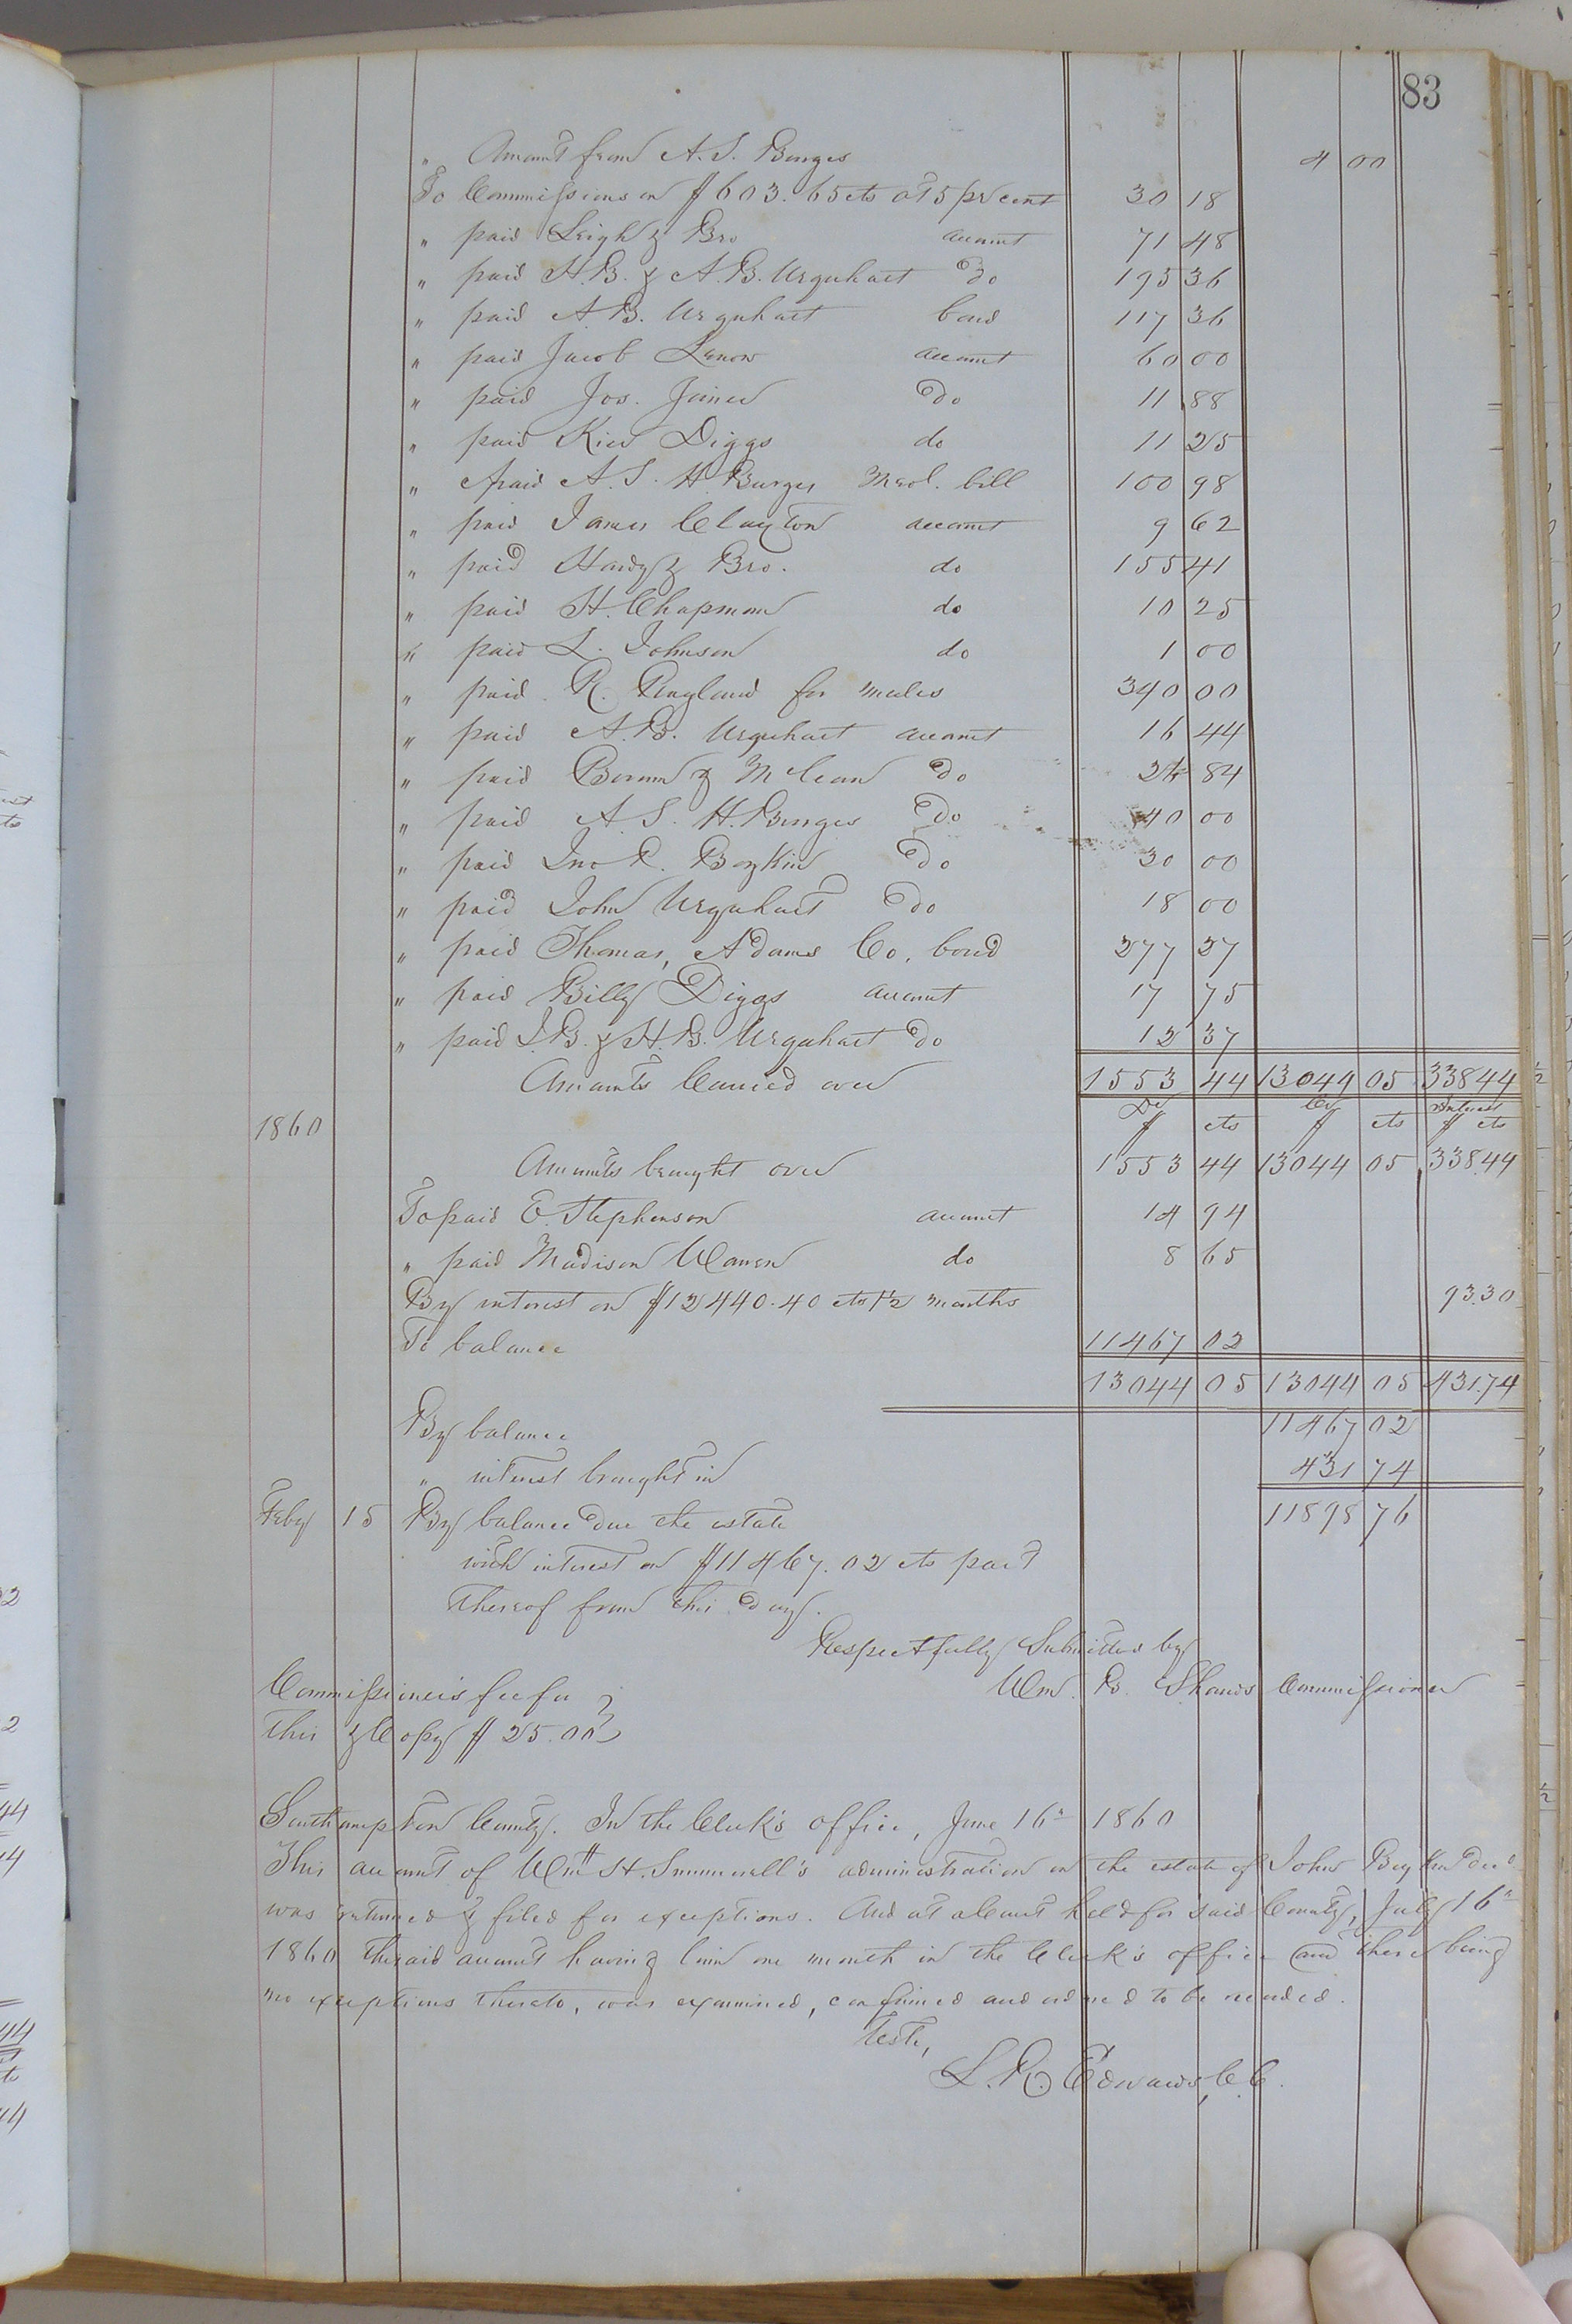 83
" Amount from A. S. Burges 4 00
To Commissions on $603.65 cts at 5 pr cent 30 18
" paid Leigh & Bro account 71 48
" paid H. B. & A. B. Urquhart Do 195 36
" paid A. B. Urquhart bond 117 36
" paid Jacob Lenow account 60 00
" paid Jos. Joiner Do 11 88
" paid Diggs do 11 25
" paid A. S. H. Burges Med. bill 100 98
" paid James Clayton account 9 62
" paid Hardy & Bro. do 155 41
" paid H. Chapman do 10 25
" paid L. Johnson do 1 00
" paid R. Ragland for mules 340 00
" paid A. B. Urquhart account 16 44
" paid & McClean Do 24 84
" paid A. S. H. Burges Do 40 00
" paid Jno R. Boykin Do 30 00
" paid John Urquhart Do 18 00
" paid Thomas, Adams Co. bond 277 27
" paid Billy Diggs account 17 75
" paid J. B. & H. B. Urquhart Do 12 37
Amounts Carried over 1553 44 13044 05 338 44
Dr Cr Interest
1860 $ cts $ cts $ cts
Amounts brought over 1553 44 13044 05 338.44
To paid E. Stephenson account 14 94
" paid Madison Warren do 8 65
By interest on $12440.40 cts 1 1/2 months 93.30
To balance 11467 02
13044 05 13044 05 431.74
By balance 11467 02
" interest brought in 431 74
Feby 15 By balance due the estate 11898 76
with interest on $11467.02 cts part
thereof from this day.
Respectfully Submitted by
Commissioner's fee for Wm. B. Shands Commissioner
this & Copy $25.00
Southampton County. In the Clerk's office, June 16th 1860
This account of Wm H. Summerell's administration on the estate of John Boykin decd
was returned & filed for exceptions. And at a Court held for said County, July 16th
1860 the said account having lain one month in the Clerk's office and there being
no exceptions thereto, was examined, confirmed and ordered to be recorded.
Teste,
L. R. Edwards, C. C.